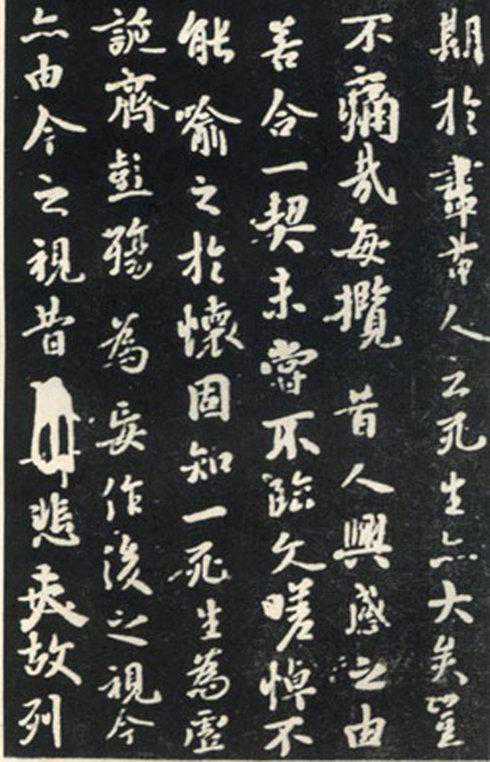 期於盡昔人云死生亦大矣豈
不痛哉每攬昔人興感之由
若合一契未嘗不臨文嗟悼不
能喻之於懷固知一死生為虛
誕齊彭殤為妄作後之視今
亦由今之視昔悲夫故列